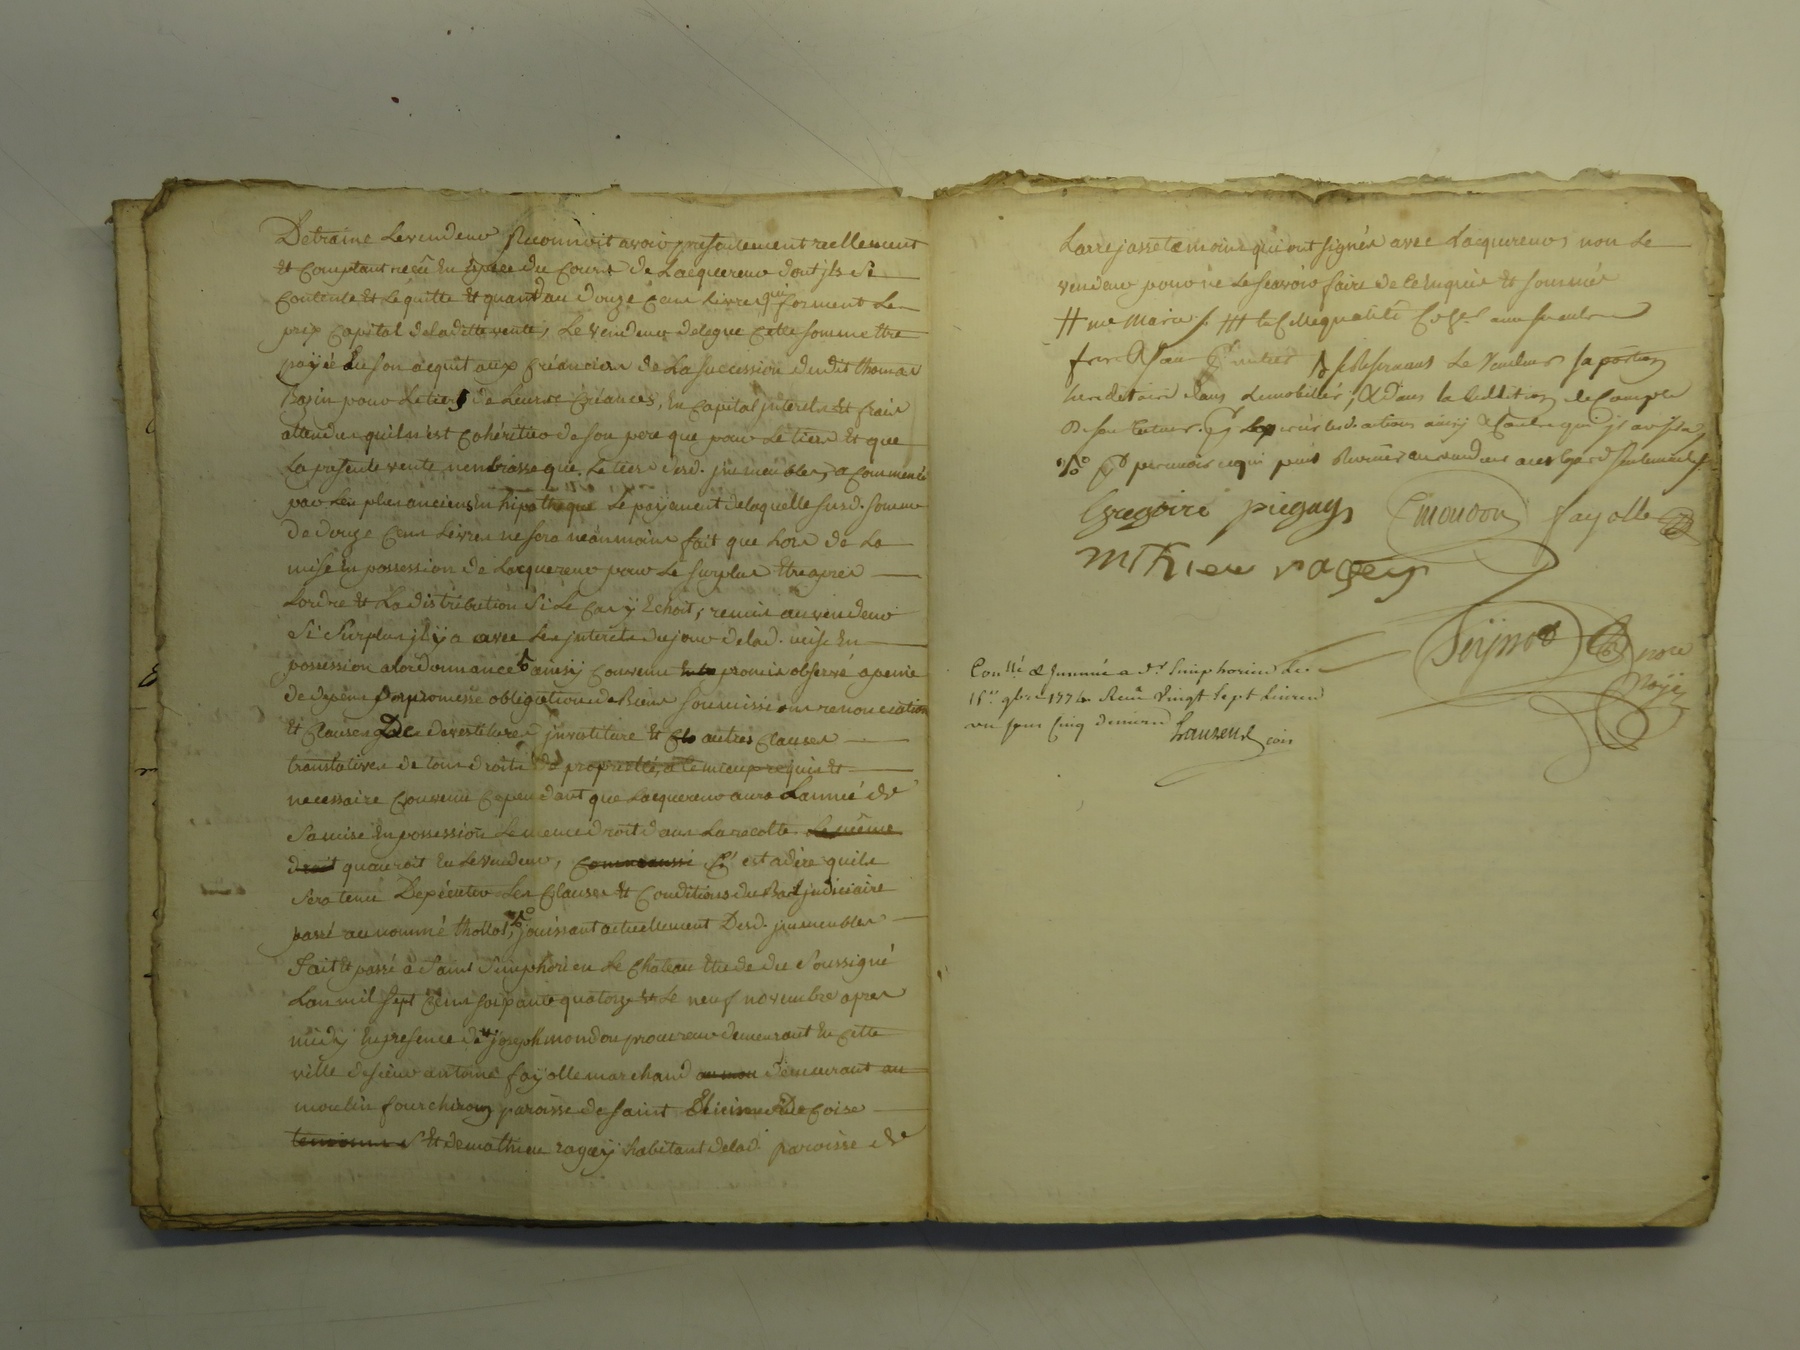 Detraine Le vendeur Reconnoit avoir presentement reellement
et Comptant reçû En espece du Cours de Lacquereur dont jls Se
Contente Et Le quitte Et quant au douze Cens Livres qui forment Le
prix Capital de laditte vente, Le vendeur delegue Cette somme Etre
payée En Son acquit aux Créanciers de La Succession dudit thomas
Bazin pour Le tiers de Leurs Créances, En Capital jnterets Et frais
attendu quil n'est Cohéritier de Son pere que pour Le tiers Et que
La presente vente n'embrasse que Le tiers desd. jmmeubles, a Commencé
par Les plus anciens En hipotheque Le payement de laquelle susd. Somme
de douze Cens Livres ne sera néanmoins fait que Lors de La
mise En possession de Lacquereur pour Le Surplus Etre apres
Lordre Et La distribution Si Le Cas y Echoit, remis au vendeur
Si Surplus jl y a avec Les jnterets du jour de lad. mise En
possession a lordonnance ainsy Convenu promis observé a peine
de depens promesse obligation de Biens Soumissions renonciation
Et Clauses De devestitures jnvestiture Et autres Clauses
translatives de tous droits de propriété,
necessaire Convenu Cependant que Lacquereur aura Lannée de
Sa mise En possession Le meme droit dans La recolte Le même
droit qu'auroit Eu Le vendeur, Comme aussi C'est a dire quil
Sera tenu D'exécuter Les Clauses Et Conditions du Bail judiciaire
passé au nommé thollot, jouissant actuellement Desd. jmmeubles
Fait Et passé à Saint Simphorien Le Chateau Etude du Soussigné
Lan mil Sept Cens soixante quatorze Et Le neuf novembre apres
midy En presence de me joseph mondon procureur demeurant En Cette
ville de Sieur antoine fayolle marchand demeurant au
moulin fourchiron paroisse de Saint Etienne De Coise
Et de mathieu ragey habitant de lad. paroisse de
Larrejasse temoins qui ont signés avec Lacquereur, non Le
vendeur pour ne Le Scavoir faire de ce Enquis Et Sommé
se reservant Le Vendeur sa portion
hereditaire dans Le mobilier, & dans la Reddition de Compte
De son tuteur.
Gregoire piegay Cmondon fayolle
mthieu ragey
nore
Roÿal
Conllé & Jnsinué a St Simphorien Le
15e 9bre 1774 Reçu Vingt Sept Livres
un sous Cinq deniers